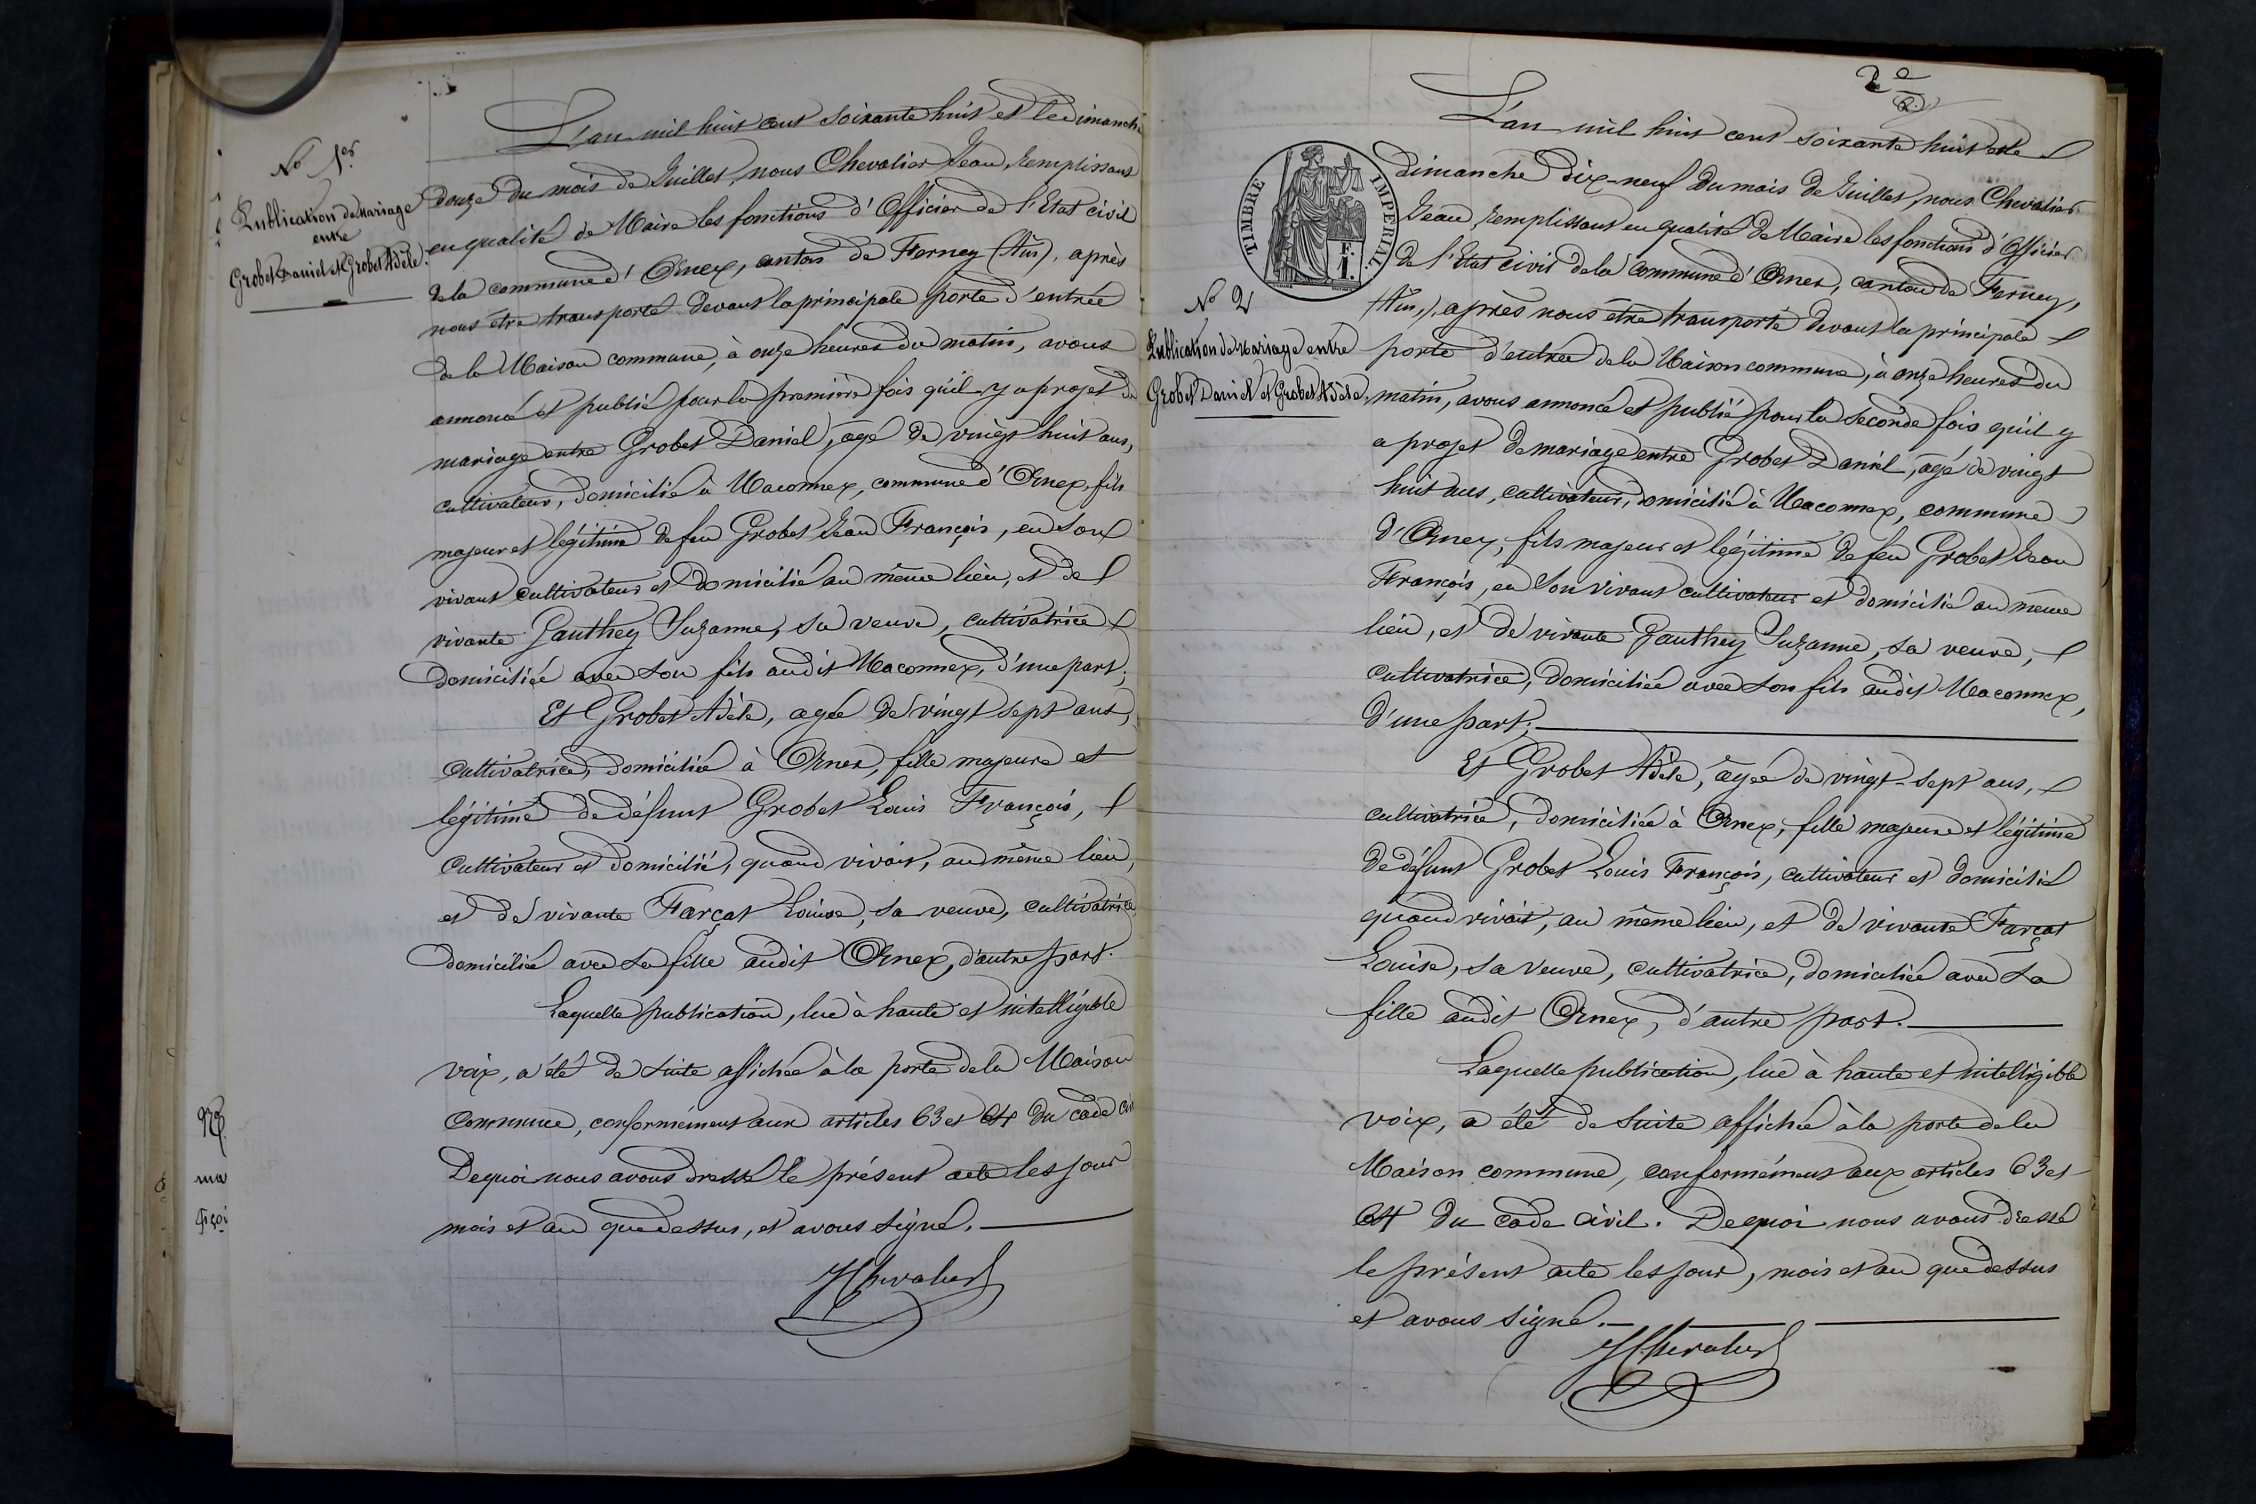 No 1er
Publication de Mariage
entre
Grobet Daniel et Grobet Adèle.
L'an mil huit cent soixante huit et le dimanche
douze du mois de Juillet, nous Chevalier Jean, remplissant
en qualité de Maire les fonctions d'Officier de l'Etat civil
de la commune d'Ornex, canton de Ferney (Ain), après
nous être transporté devant la principale porte d'entrée
de la Maison commune, à onze heures du matin, avons
annoncé et publié pour la première fois qu'il y a projet de
mariage entre Grobet Daniel, âgé de vingt huit ans,
cultivateur, domicilié à Maconnex, commune d'Ornex, fils
majeur et légitime de feu Grobet Jean François, en son
vivant cultivateur et domicilié au même lieu, et de
vivante Gauthey Suzanne, sa veuve, cultivatrice
domiciliée avec son fils audit Maconnex, d'une part;
Et Grobet Adèle, agée de vingt sept ans,
cultivatrice, domiciliée à Ornex, fille majeure et
légitime de défunt Grobet Louis François,
cultivateur et domicilié, quand vivait, au même lieu,
et de vivante Farçat Louise, sa veuve, cultivatrice
domiciliée avec sa fille audit Ornex, d'autre part.
Laquelle publication, lue à haute et intelligible
voix, a été de suite affichée à la porte de la Maison
commune, conformément aux articles 63 et 64 du code civ
De quoi nous avons dressé le présent acte les jour
mois et an que dessus, et avons signé.
JChevalier
2e
No 2
Publication de Mariage entre
Grobet Daniel et Grobet Adèle.
TIMBRE IMPERIAL
F.
1.
L'an mil huit cent soixante huit et le
dimanche dix-neuf du mois de Juillet, nous Chevalier
Jean, remplissant en qualité de Maire les fonctions d'Officier
de l'Etat civil de la commune d'Ornex, canton de Ferney,
(Ain,), après nous être transporté devant la principale
porte d'entrée de la Maison commune, à onze heures du
matin, avons annoncé et publié pour la seconde fois qu'il y
a projet de mariage entre Grobet Daniel, âgé de vingt
huit ans, cultivateur, domicilié à Maconnex, commune
d'Ornex, fils majeur et légitime de feu Grobet Jean
François, en son vivant cultivateur et domicilié au même
lieu, et de vivante Gauthey Suzanne, sa veuve,
cultivatrice, domiciliée avec son fils audit Maconnex,
d'une part;
Et Grobet Adèle, âgée de vingt-sept ans,
cultivatrice, domiciliée à Ornex, fille majeure et légitime
de défunt Grobet Louis François, cultivateur et domicilié
quand vivait, au même lieu, et de vivante Farçat
Louise, sa veuve, cultivatrice, domiciliée avec sa
fille audit Ornex, d'autre part.
Laquelle publication, lue à haute et intelligible
voix, a été de suite affichée à la porte de la
Maison commune, conformément aux articles 63 et
64 du code civil. De quoi nous avons dressé
le présent acte les jour, mois et an que dessus
et avons signé.
JChevalier